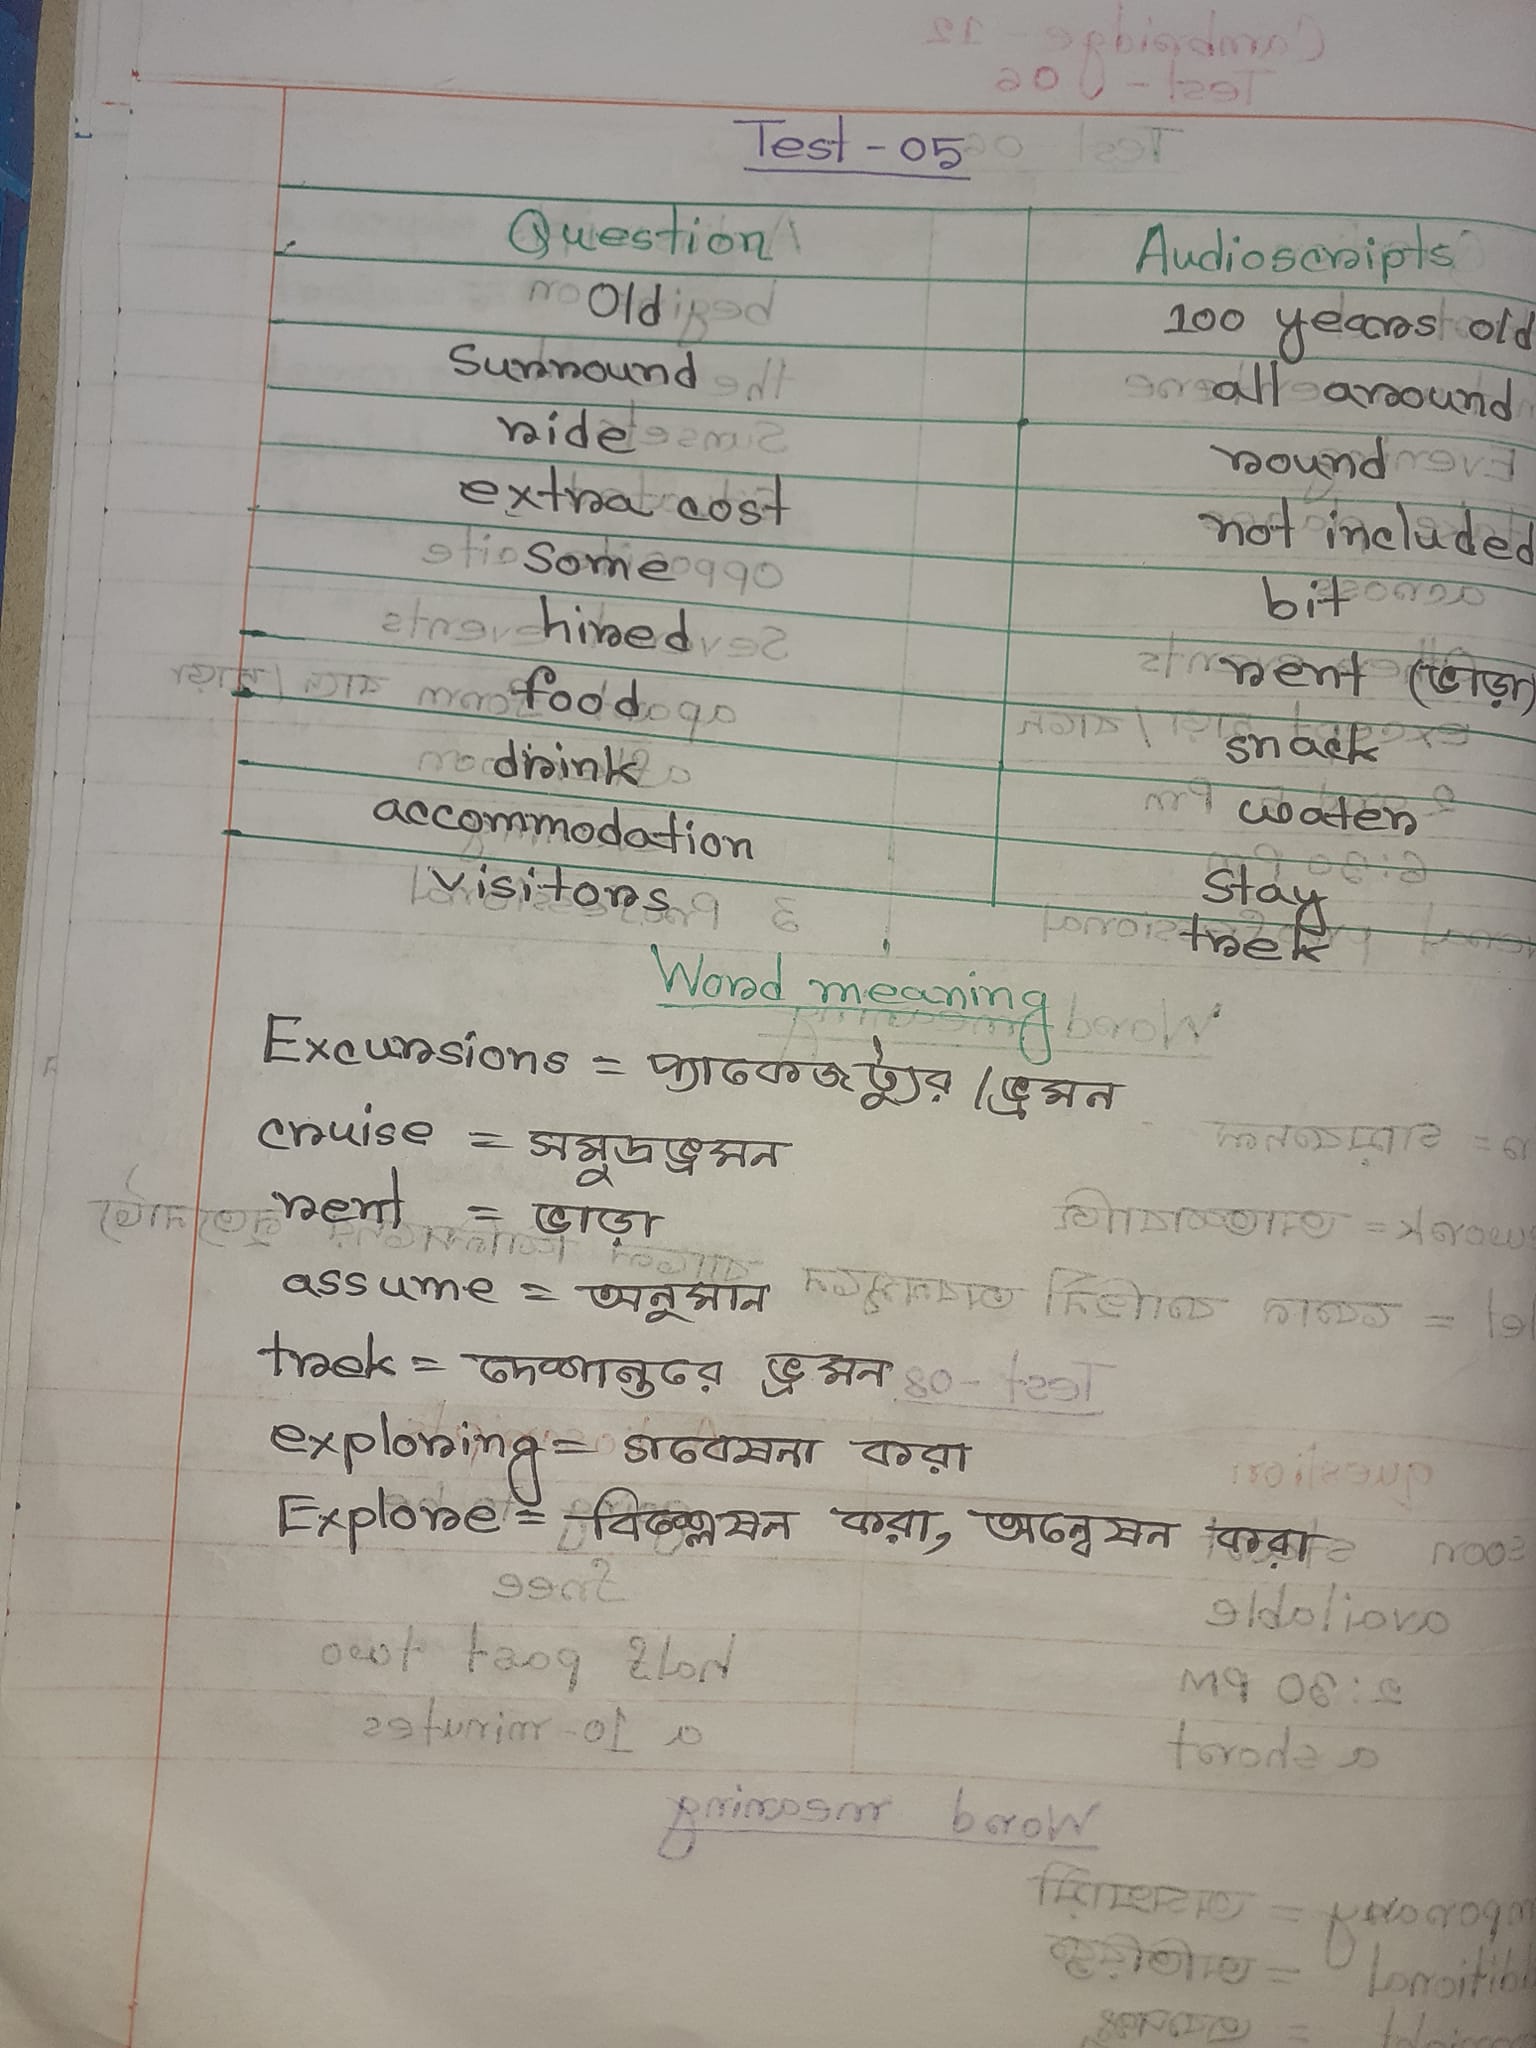 Test - 05
Question Audioscripts
Old 100 years old
Surround all around
ride round
extra cost not included
Some bit
hired rent (ভাড়া)
food snack
drink water
accommodation Stay
visitors trek
Word meaning
Excursions = প্যাকেজট্যুর / ভ্রমন
cruise = সমুদ্রভ্রমন
rent = ভাড়া
assume = অনুমান
trek = দেশান্তরে ভ্রমন
exploring = গবেষনা করা
Explore = বিশ্লেষন করা, অন্বেষন করা